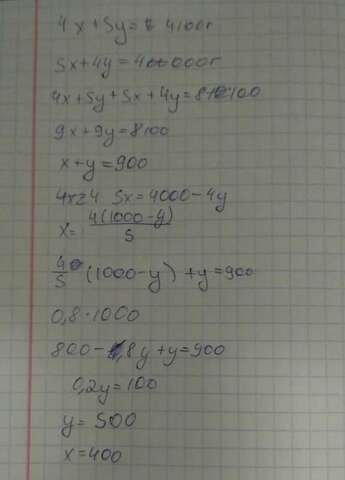 4x+5y= 4100г
5x+4y=4000г
4x+5y+5x+4y=8100
9x+9y=8100
x+y=900
4x=4 5x=4000-4y
x= 4(1000-y)/5
4/5 (1000-y)+y=900
0,8·1000
800-0,8y+y=900
0,2y=100
y=500
x=400